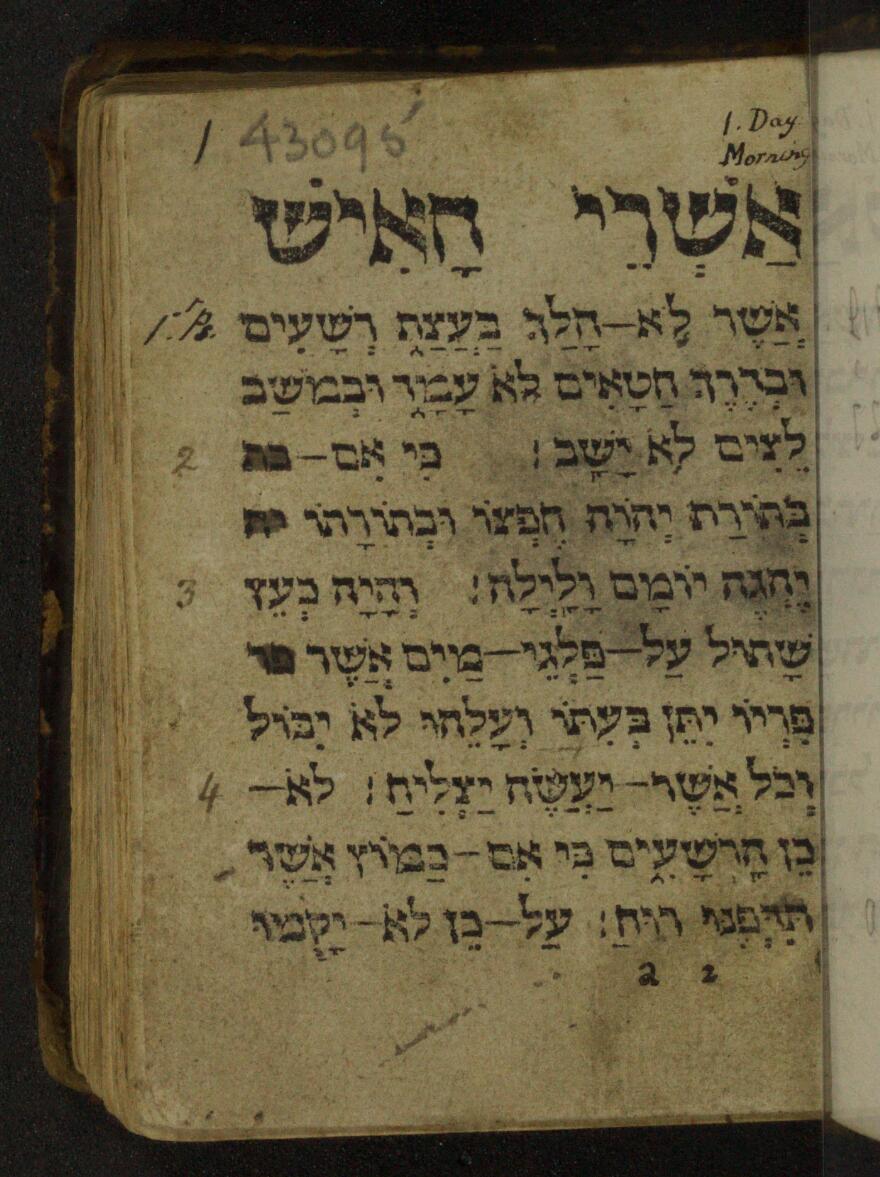 1 43095
1. Day
Morning
אַשְׁרֵי הָאִישׁ
אֲשֶׁר לֹא־הָלַךְ בַּעֲצַת רְשָׁעִים
וּבְדֶרֶךְ חַטָּאִים לֹא עָמָד וּבְמֹשַׁב
2 לֵצִים לֹא יָשָׁב׃ כִּי אִם־בת
בְּתוֹרַת יְהוָה חֶפְצוֹ וּבְתוֹרָתוֹ יה
3 יֶהְגֶּה יוֹמָם וָלָיְלָה׃ וְהָיָה כְּעֵץ
שָׁתוּל עַל־פַּלְגֵי־מַיִם אֲשֶׁר פר
פִּרְיוֹ יִתֵּן בְּעִתּוֹ וְעָלֵהוּ לֹא יִבּוֹל
4 וְכֹל אֲשֶׁר־יַעֲשֶׂה יַצְלִיחַ׃ לֹא־
כֵן הָרְשָׁעִים כִּי אִם־כַּמּוֹץ אֲשֶׁר
תִּדְּפֶנּוּ רוּחַ׃ עַל־כֵּן לֹא־יָקֻמוּ
a 2